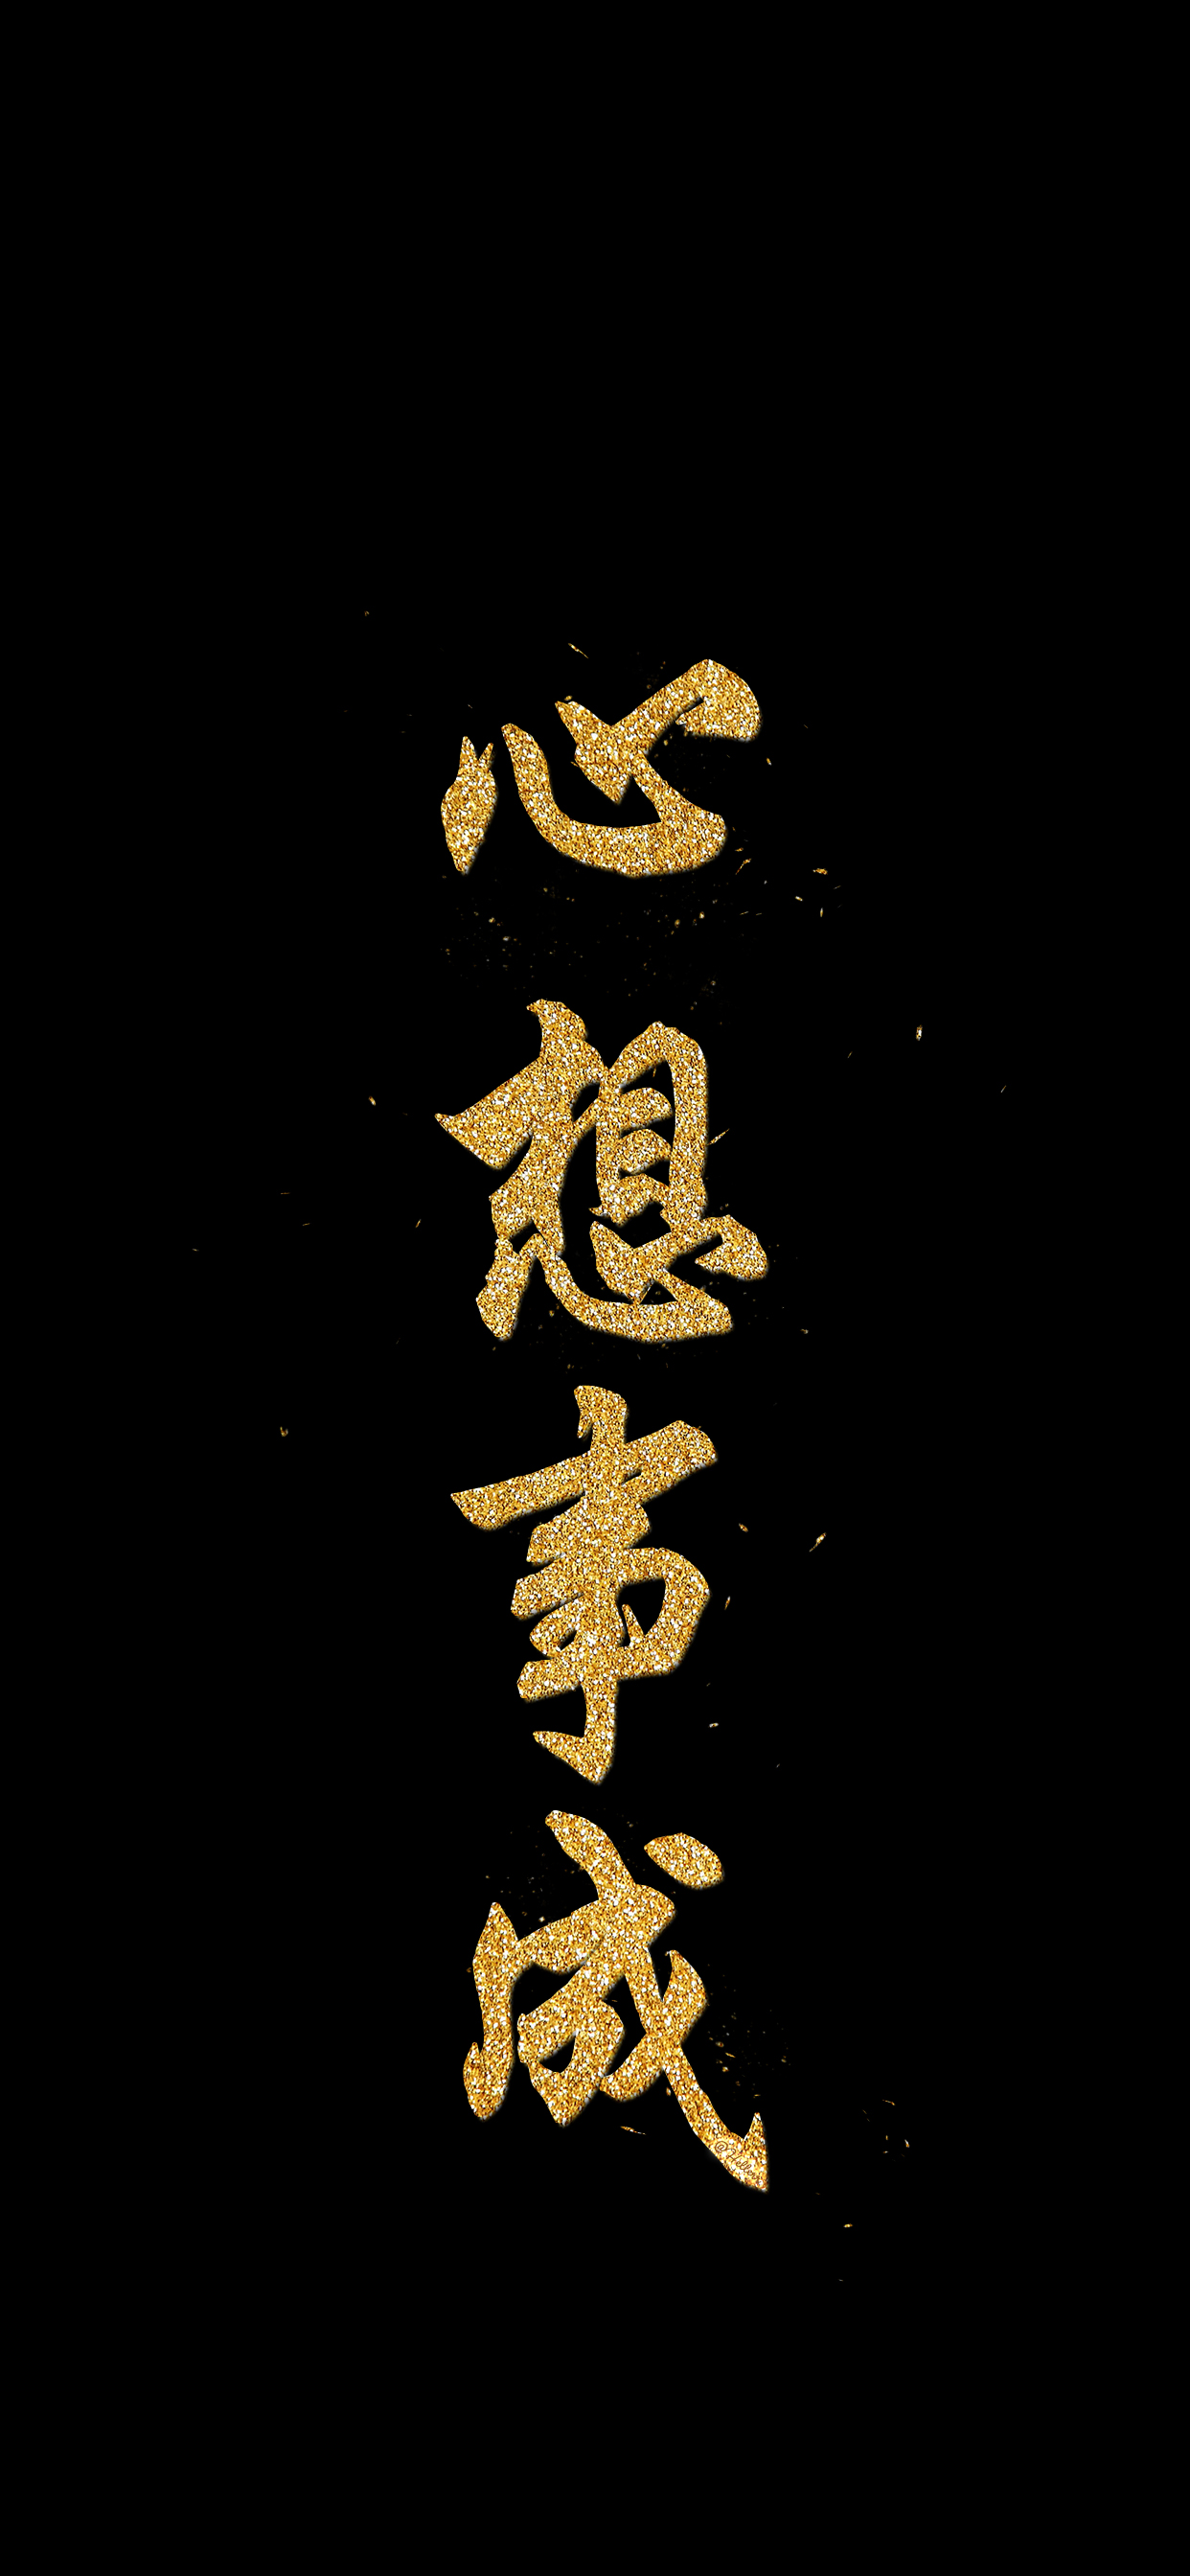 心想事成